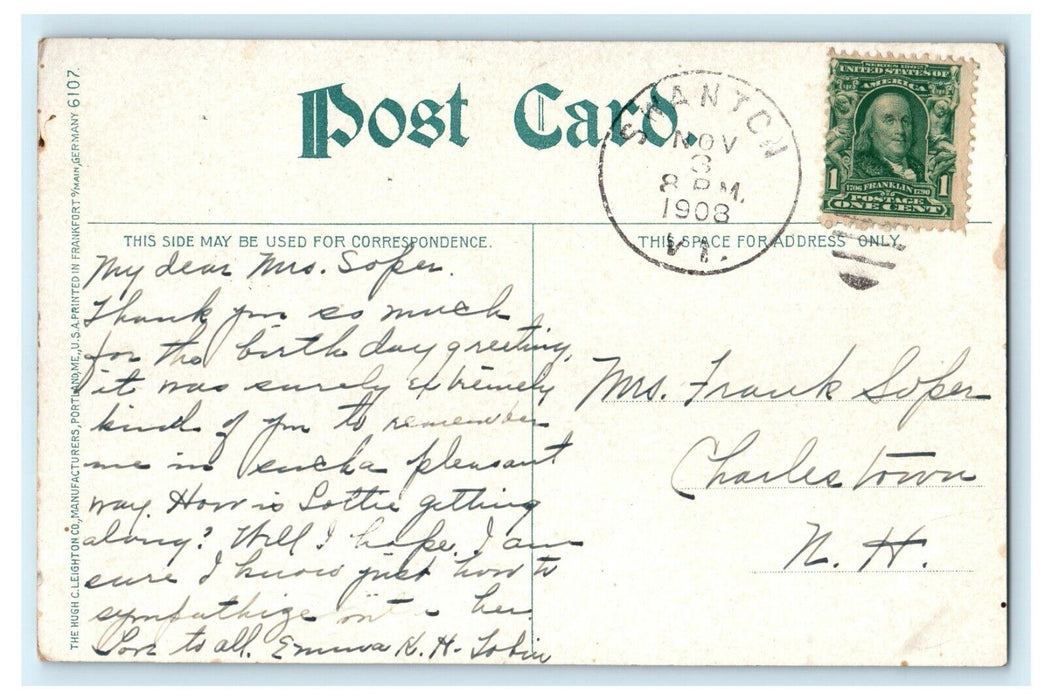 Post Card.
SWANTON
NOV
3
8 P.M.
1908
VT.
SERIES 1902
UNITED STATES OF
AMERICA
1 1706 FRANKLIN 1790 1
POSTAGE
ONE CENT
THIS SIDE MAY BE USED FOR CORRESPONDENCE.
THIS SPACE FOR ADDRESS ONLY.
THE HUGH C. LEIGHTON CO., MANUFACTURERS, PORTLAND, ME., U.S.A. PRINTED IN FRANKFORT o/MAIN, GERMANY 6107.
My dear Mrs. Soper.
Thank you so much
for the birthday greeting,
it was surely extremely
kind of you to remember
me in such a pleasant
way. How is Lottie getting
along? Well I hope. I am
sure I know just how to
sympathize with her.
Love to all. Emma K. H. Tobin
Mrs. Frank Soper
Charlestown
N. H.